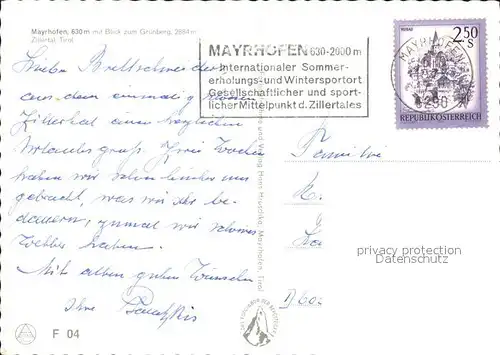 Mayrhofen, 630 m mit Blick zum Grünberg, 2864 m
Zillertal, Tirol
MAYRHOFEN 630-2000 m
Internationaler Sommer-
erholungs-und Wintersportort
Gesellschaftlicher und sport-
licher Mittelpunkt d. Zillertales
2.50
S
MAYRHOFEN
6290
REPUBLIK ÖSTERREICH
aus dem einmalig schönen
Zillertal einen herzlichen
Urlaubsgruß. Zwei Wochen
haben wir schon hinter uns
gebracht, was wir sehr be-
dauern, zumal wir schönes
Wetter haben.
Mit allen guten Wünschen
Ihre
Familie
K.
D 600
privacy protection
Datenschutz
F 04